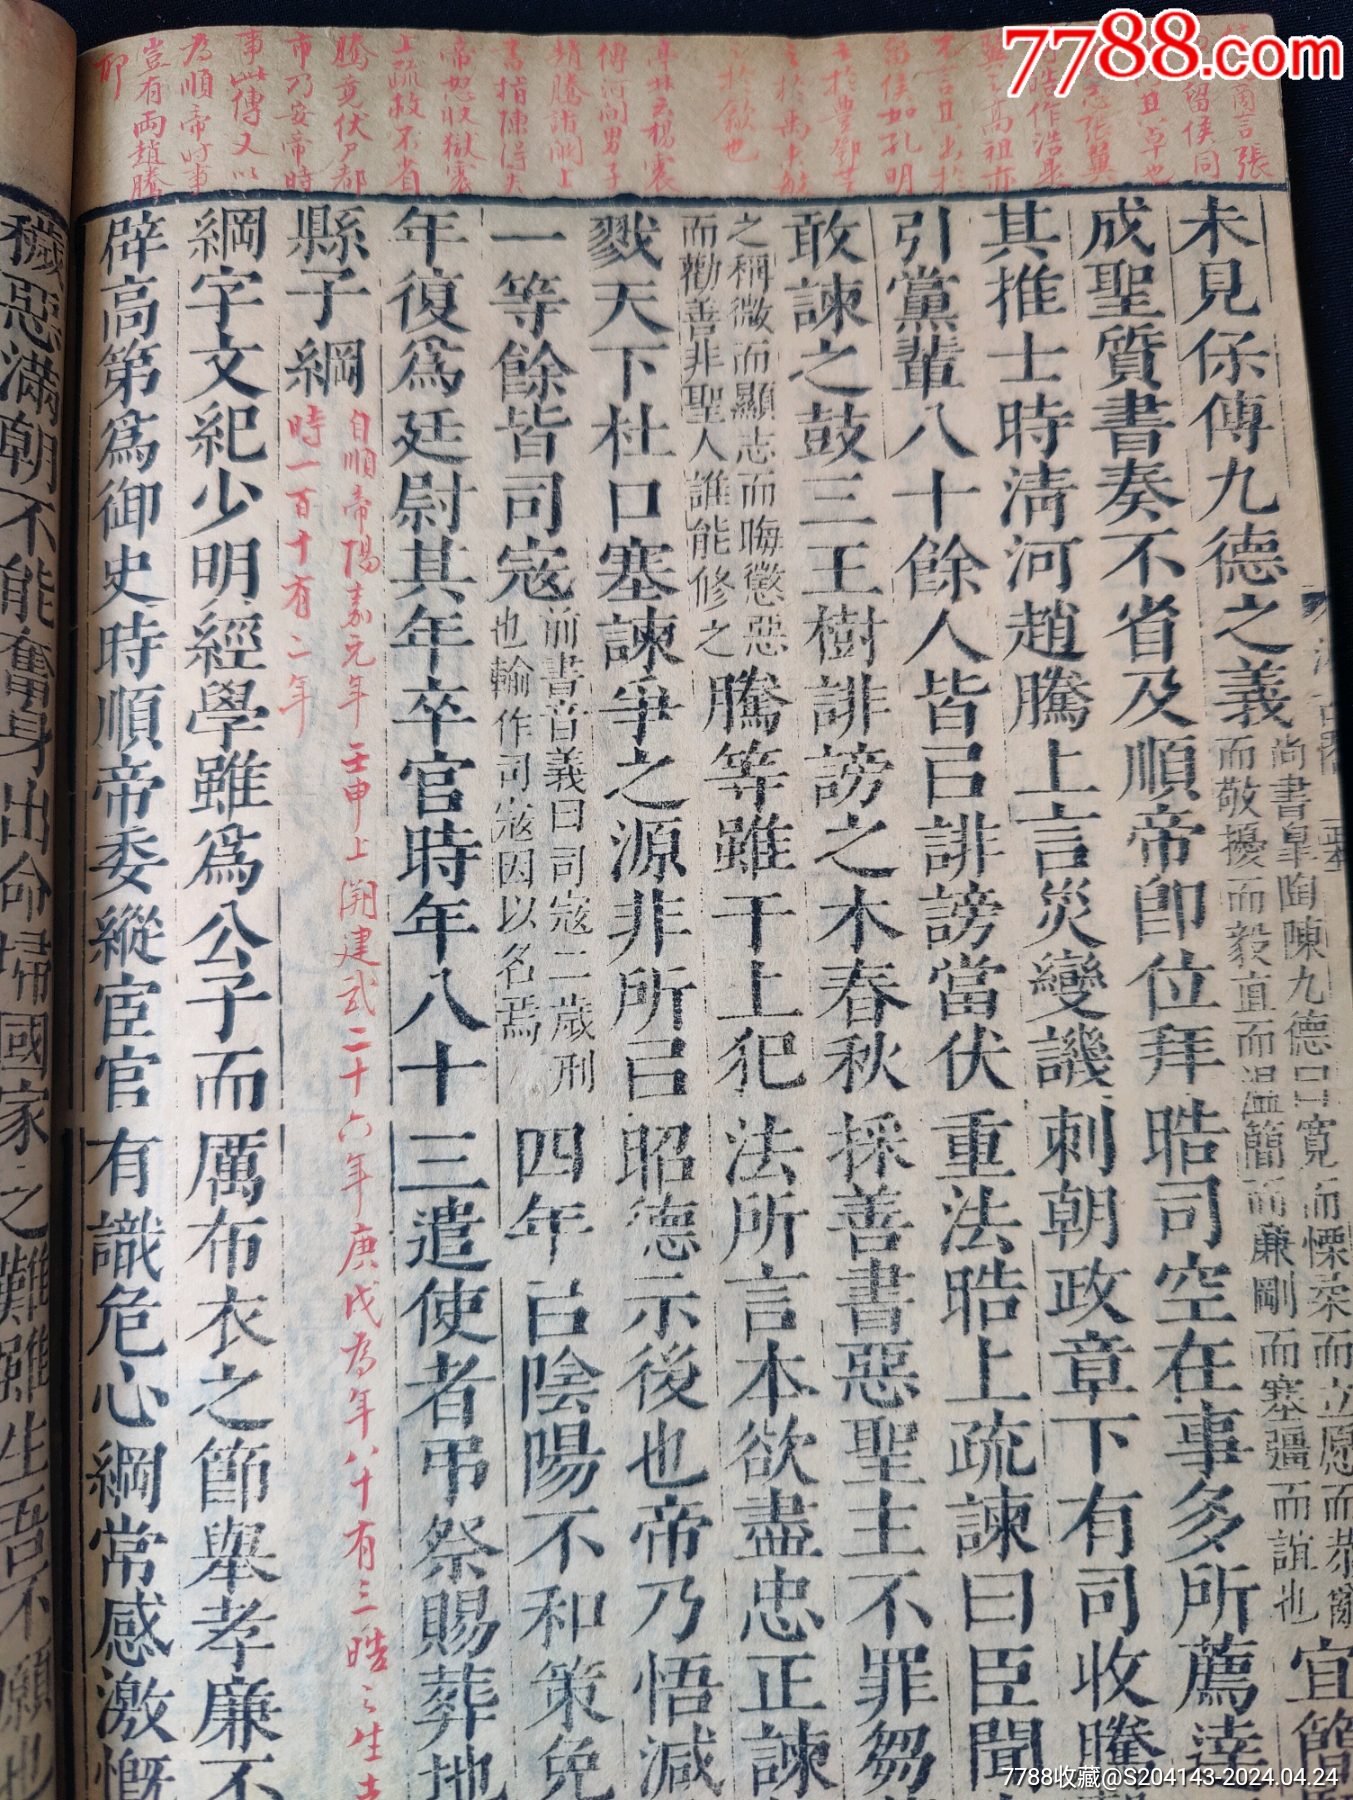 7788.com
未見保傅九德之義
尚書皐陶陳九德曰寬而慄柔而立愿而恭
而敬擾而毅直而温簡而廉剛而塞彊而誼也
宜簡
成聖質書奏不省及順帝卽位拜晧司空在事多所薦達
其推士時淸河趙騰上言災變譏刺朝政章下有司收騰
引黨輩八十餘人皆㠯誹謗當伏重法晧上疏諫曰臣聞
敢諫之鼓三王樹誹謗之木春秋採善書惡聖主不罪芻
之稱微而顯志而晦懲惡
而勸善非聖人誰能修之
騰等雖干上犯法所言本欲盡忠正諫
戮天下杜口塞諫爭之源非所㠯昭德示後也帝乃悟減
一等餘皆司寇
前書音義曰司寇二歲刑
也輸作司寇因以名焉
四年㠯陰陽不和策免
年復爲廷尉其年卒官時年八十三遣使者弔祭賜葬地
縣子綱
自順帝陽嘉元年壬申上溯建武二十六年庚戌為年八十有三晧之生
時一百十有二年
綱字文紀少明經學雖爲公子而厲布衣之節舉孝廉不
辟高第爲御史時順帝委縱宦官有識危心綱常感激慨
穢惡滿朝不能奮身出命埽國家之難雖生吾不願也
言張
留侯同
且草也
志張冀
浩作浩
高祖亦
不言且出於
留侯如孔明
於豊鄧芝
於禹
於歙也
傳楊震
傳河間男子
趙騰詣闕上
書指陳得失
帝怒收獄震
上疏救不省
騰竟伏尸都
市乃安帝時
事此傳又以
為順帝時事
豈有兩趙騰
耶
7788收藏@S204143-2024.04.24